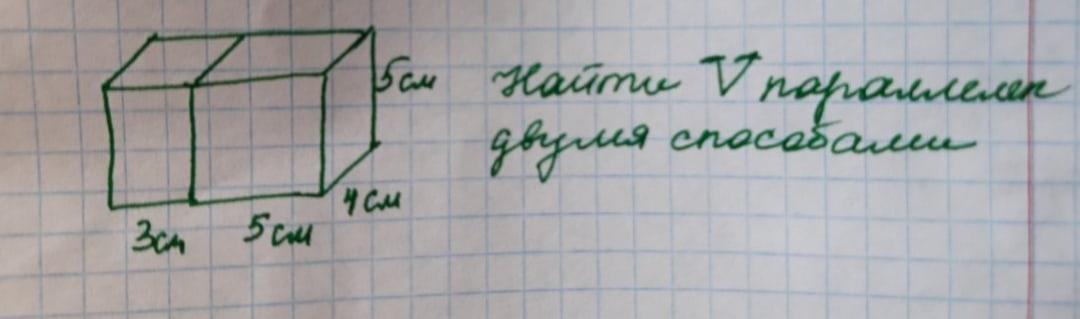 5см
Найти V параллелеп
двумя способами
4см
3см
5см